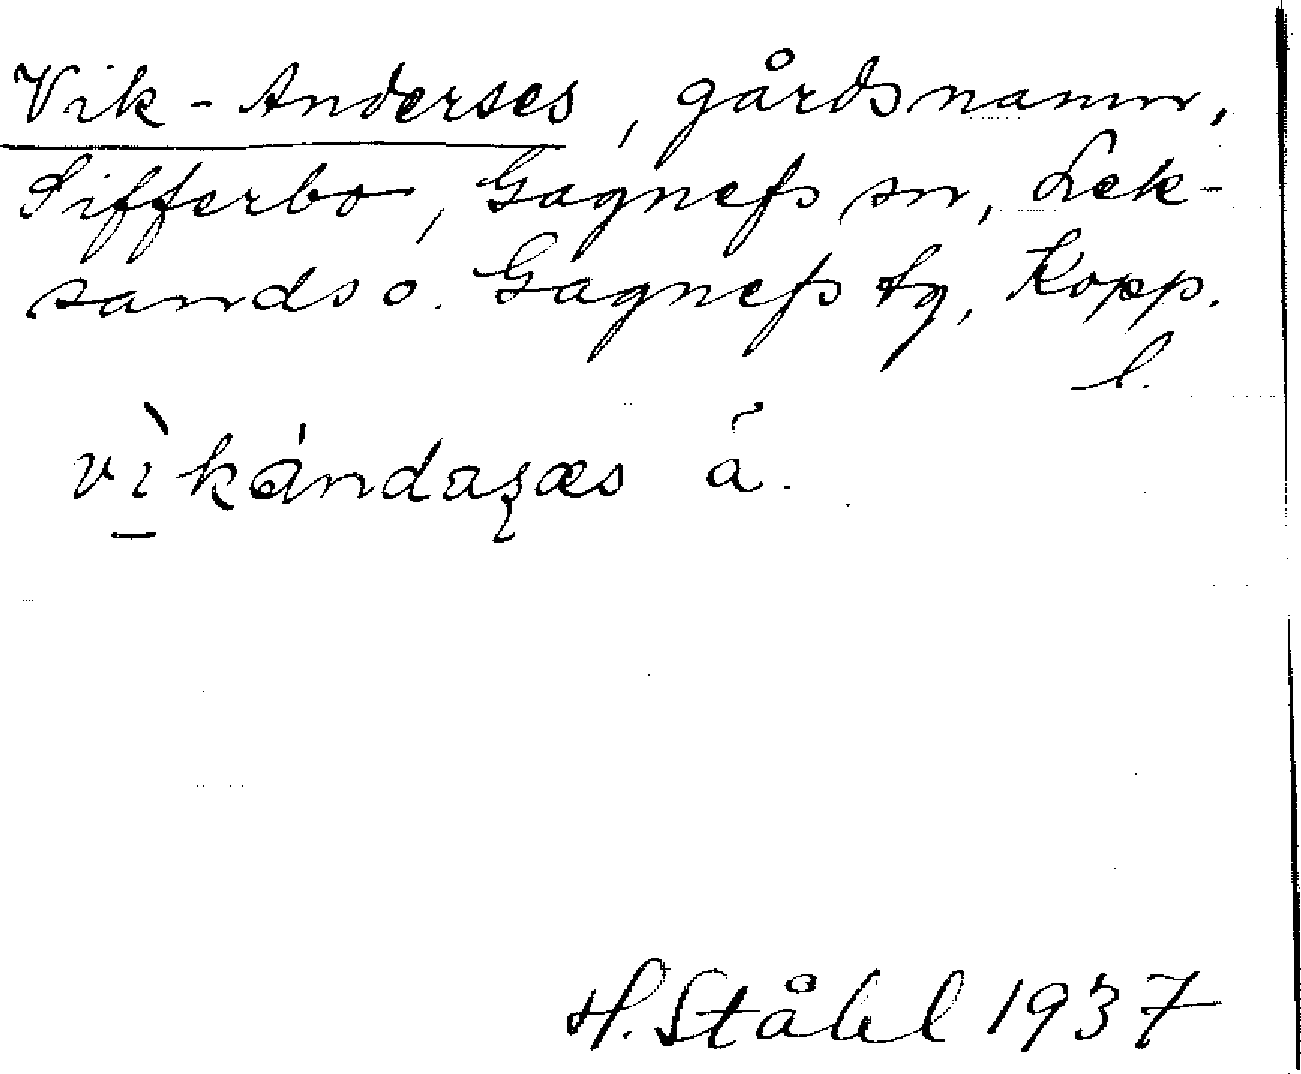 Vik-Anderses, gårdsnamn,
Sifferbo, Gagnefs sn, Lek-
sands o. Gagnefs tg, Kopp.
l.
vìkándaʂæs ä.
H. Ståhl 1937